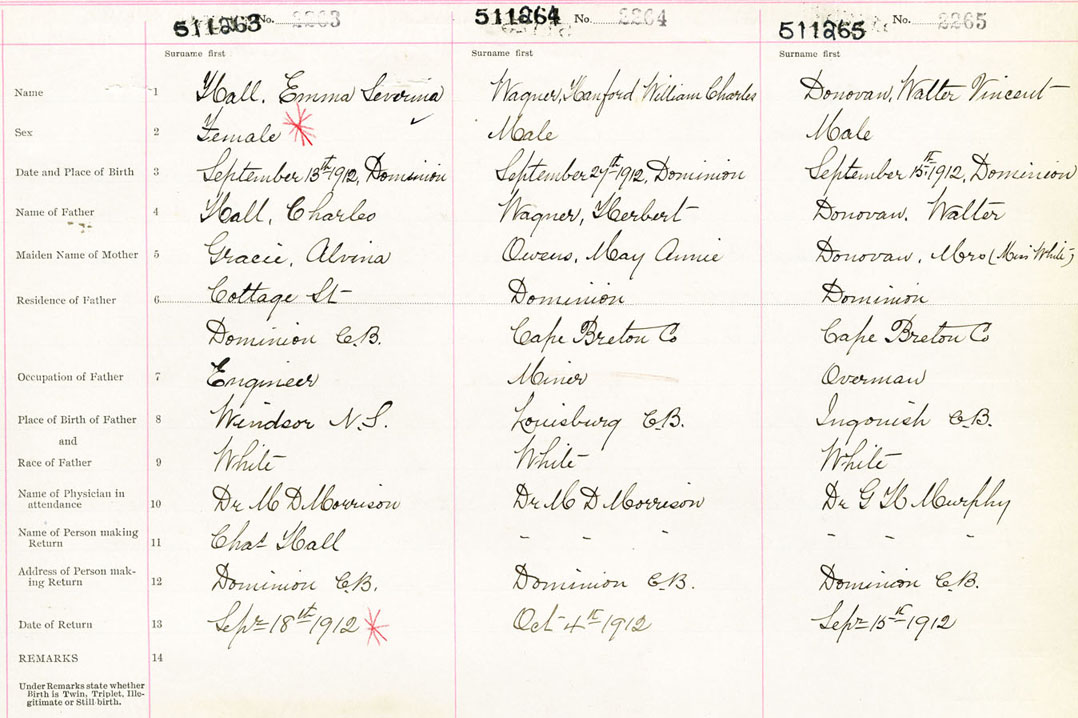 511263 No. 2263 511264 No. 2264 511265 No. 2265
Surname first Surname first Surname first
Name 1 Hall, Emma Severina Wagner, Hanford William Charles Donovan, Walter Vincent
Sex 2 Female Male Male
Date and Place of Birth 3 September 13th 1912, Dominion September 27th 1912, Dominion September 15th 1912, Dominion
Name of Father 4 Hall, Charles Wagner, Herbert Donovan, Walter
Maiden Name of Mother 5 Gracie, Alvina Owens, May Annie Donovan, Mrs (Miss White)
Residence of Father 6 Cottage St Dominion Dominion
Dominion C.B. Cape Breton Co Cape Breton Co
Occupation of Father 7 Engineer Miner Overman
Place of Birth of Father 8 Windsor N.S. Louisburg C.B. Ingonish C.B.
and
Race of Father 9 White White White
Name of Physician in
attendance 10 Dr M D Morrison Dr M D Morrison Dr G H Murphy
Name of Person making
Return 11 Chas Hall " " " " " "
Address of Person mak-
ing Return 12 Dominion C.B. Dominion C.B. Dominion C.B.
Date of Return 13 Sepr 18th 1912 Oct 4th 1912 Sepr 15th 1912
REMARKS 14
Under Remarks state whether
Birth is Twin, Triplet, Ille-
gitimate or Still birth.